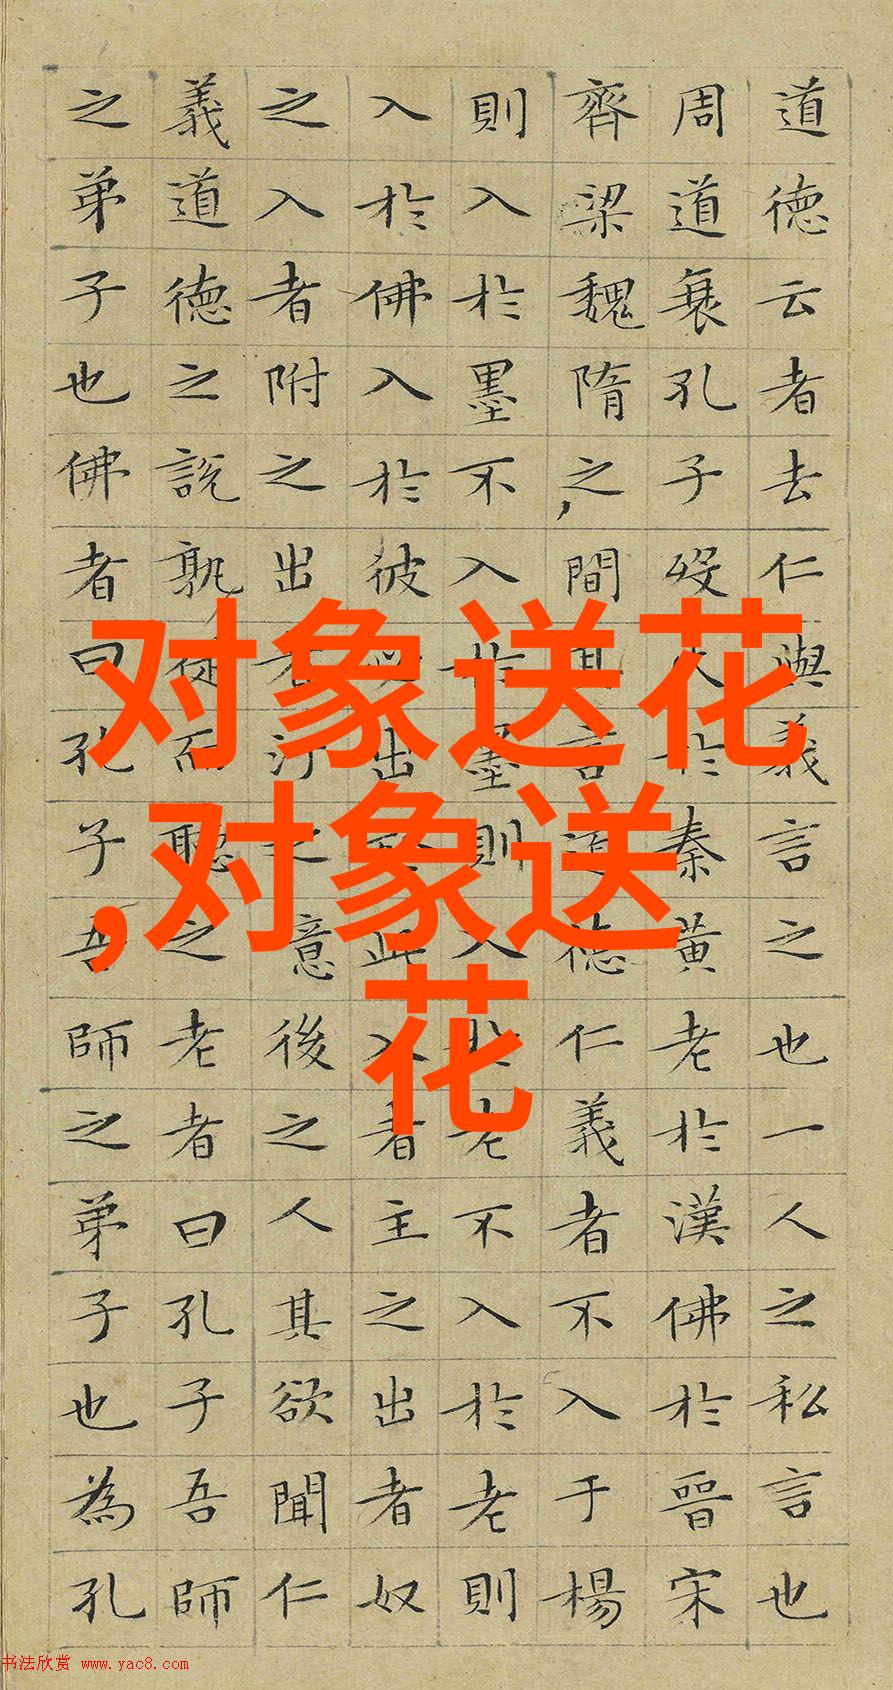 道德云者去仁與義言之也一人之私言也
周道衰孔子歿火於秦黃老於漢佛於晉宋
齊梁魏隋之間其言道德仁義者不入于楊
則入於墨不入於墨則入於老不入於老則
入於佛入於彼必出於此入者主之出者奴
之入者附之出者汙之意後之人其欲聞仁
義道德之說孰從而聽之老者曰孔子吾師
之弟子也佛者曰孔子吾師之弟子也為孔
对象送花
,对象送
花
书法欣赏 www.yac8.com